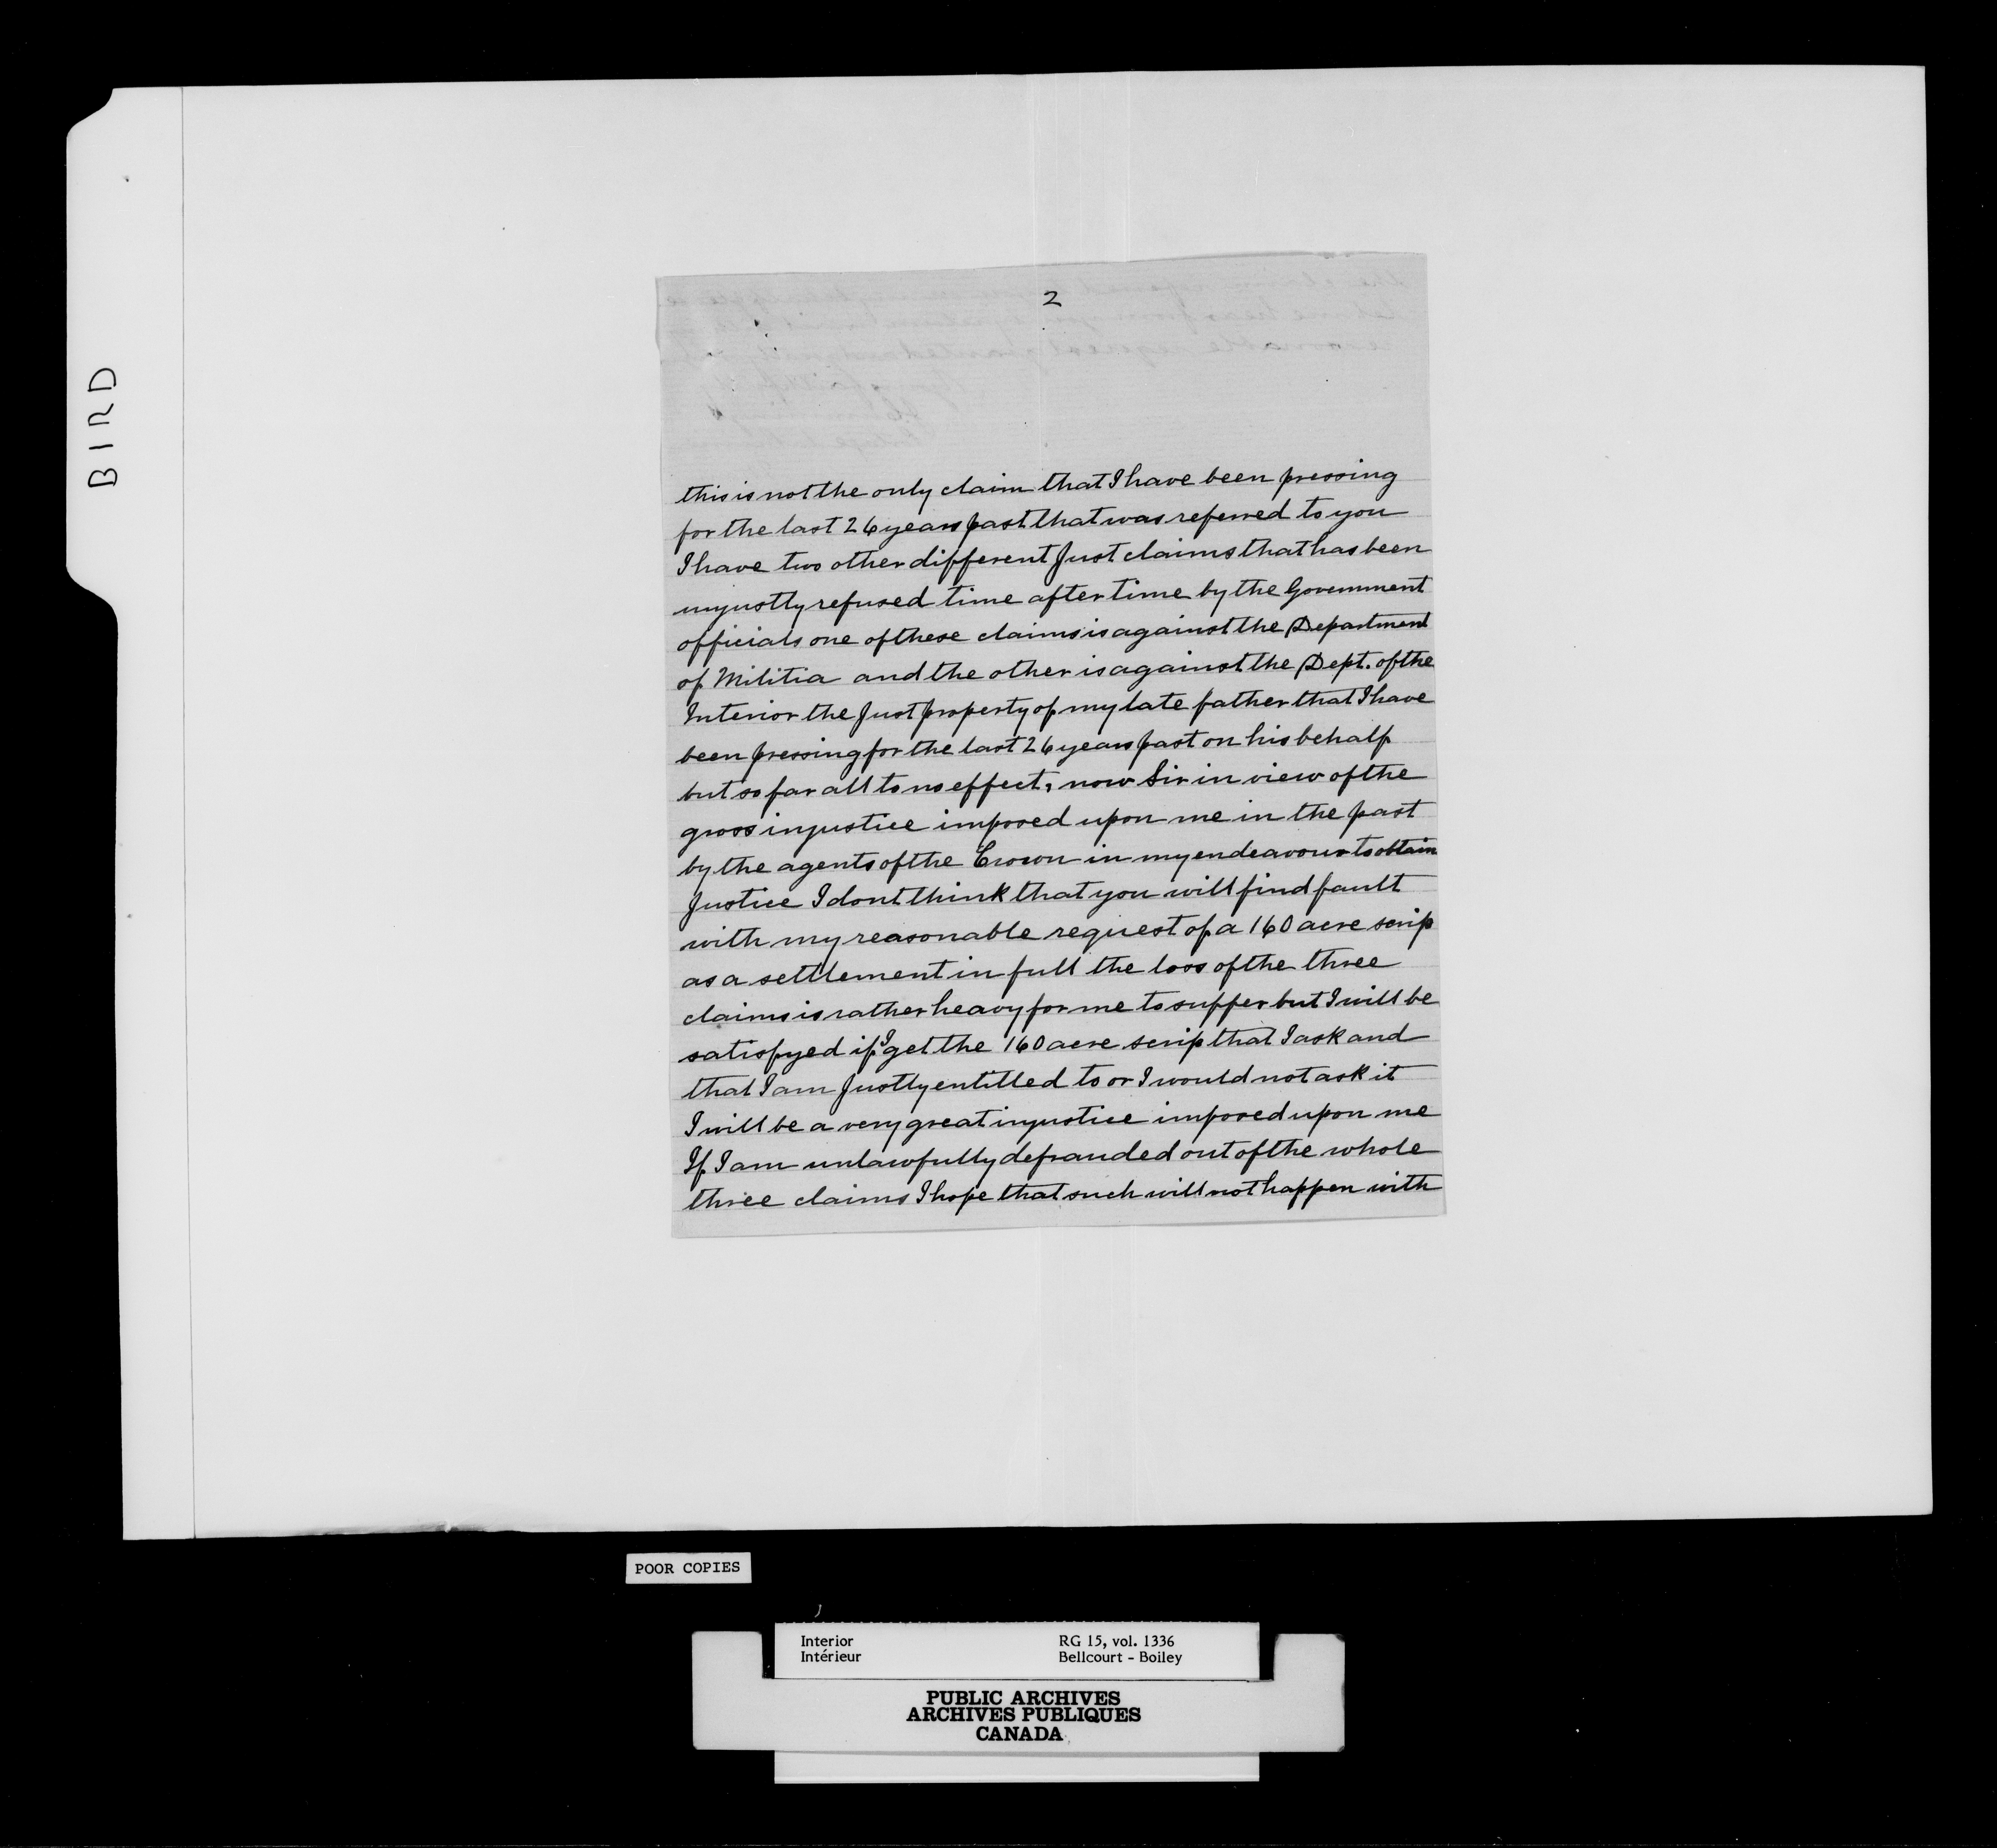 BIRD
2
this is not the only claim that I have been pressing
for the last 26 years past that was referred to you
I have two other different Just claims that has been
unjustly refused time after time by the Government
officials one of these claims is against the Department
of Militia and the other is against the Dept. of the
Interior the Just property of my late father that I have
been pressing for the last 26 years past on his behalf
but so far all to no effect, now Sir in view of the
gross injustice imposed upon me in the past
by the agents of the Crown in my endeavour to obtain
Justice I dont think that you will find fault
with my reasonable request of a 160 acre scrip
as a settlement in full the loss of the three
claims is rather heavy for me to suffer but I will be
satisfyed if I get the 160 acre scrip that I ask and
that I am Justly entitled to or I would not ask it
I will be a very great injustice imposed upon me
If I am unlawfully defrauded out of the whole
three claims I hope that such will not happen with
POOR COPIES
Interior RG 15, vol. 1336
Intérieur Bellcourt - Boiley
PUBLIC ARCHIVES
ARCHIVES PUBLIQUES
CANADA